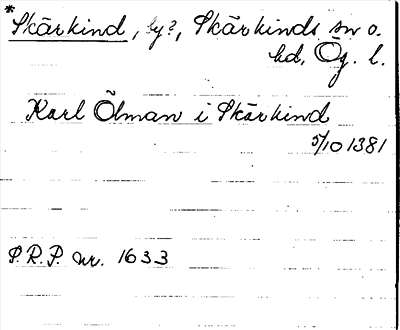 *Skärkind, by?, Skärkinds sn o.
hd, Ög. l.
Karl Ölman i Skärkind
5/10 1381
S.R.P. nr. 1633